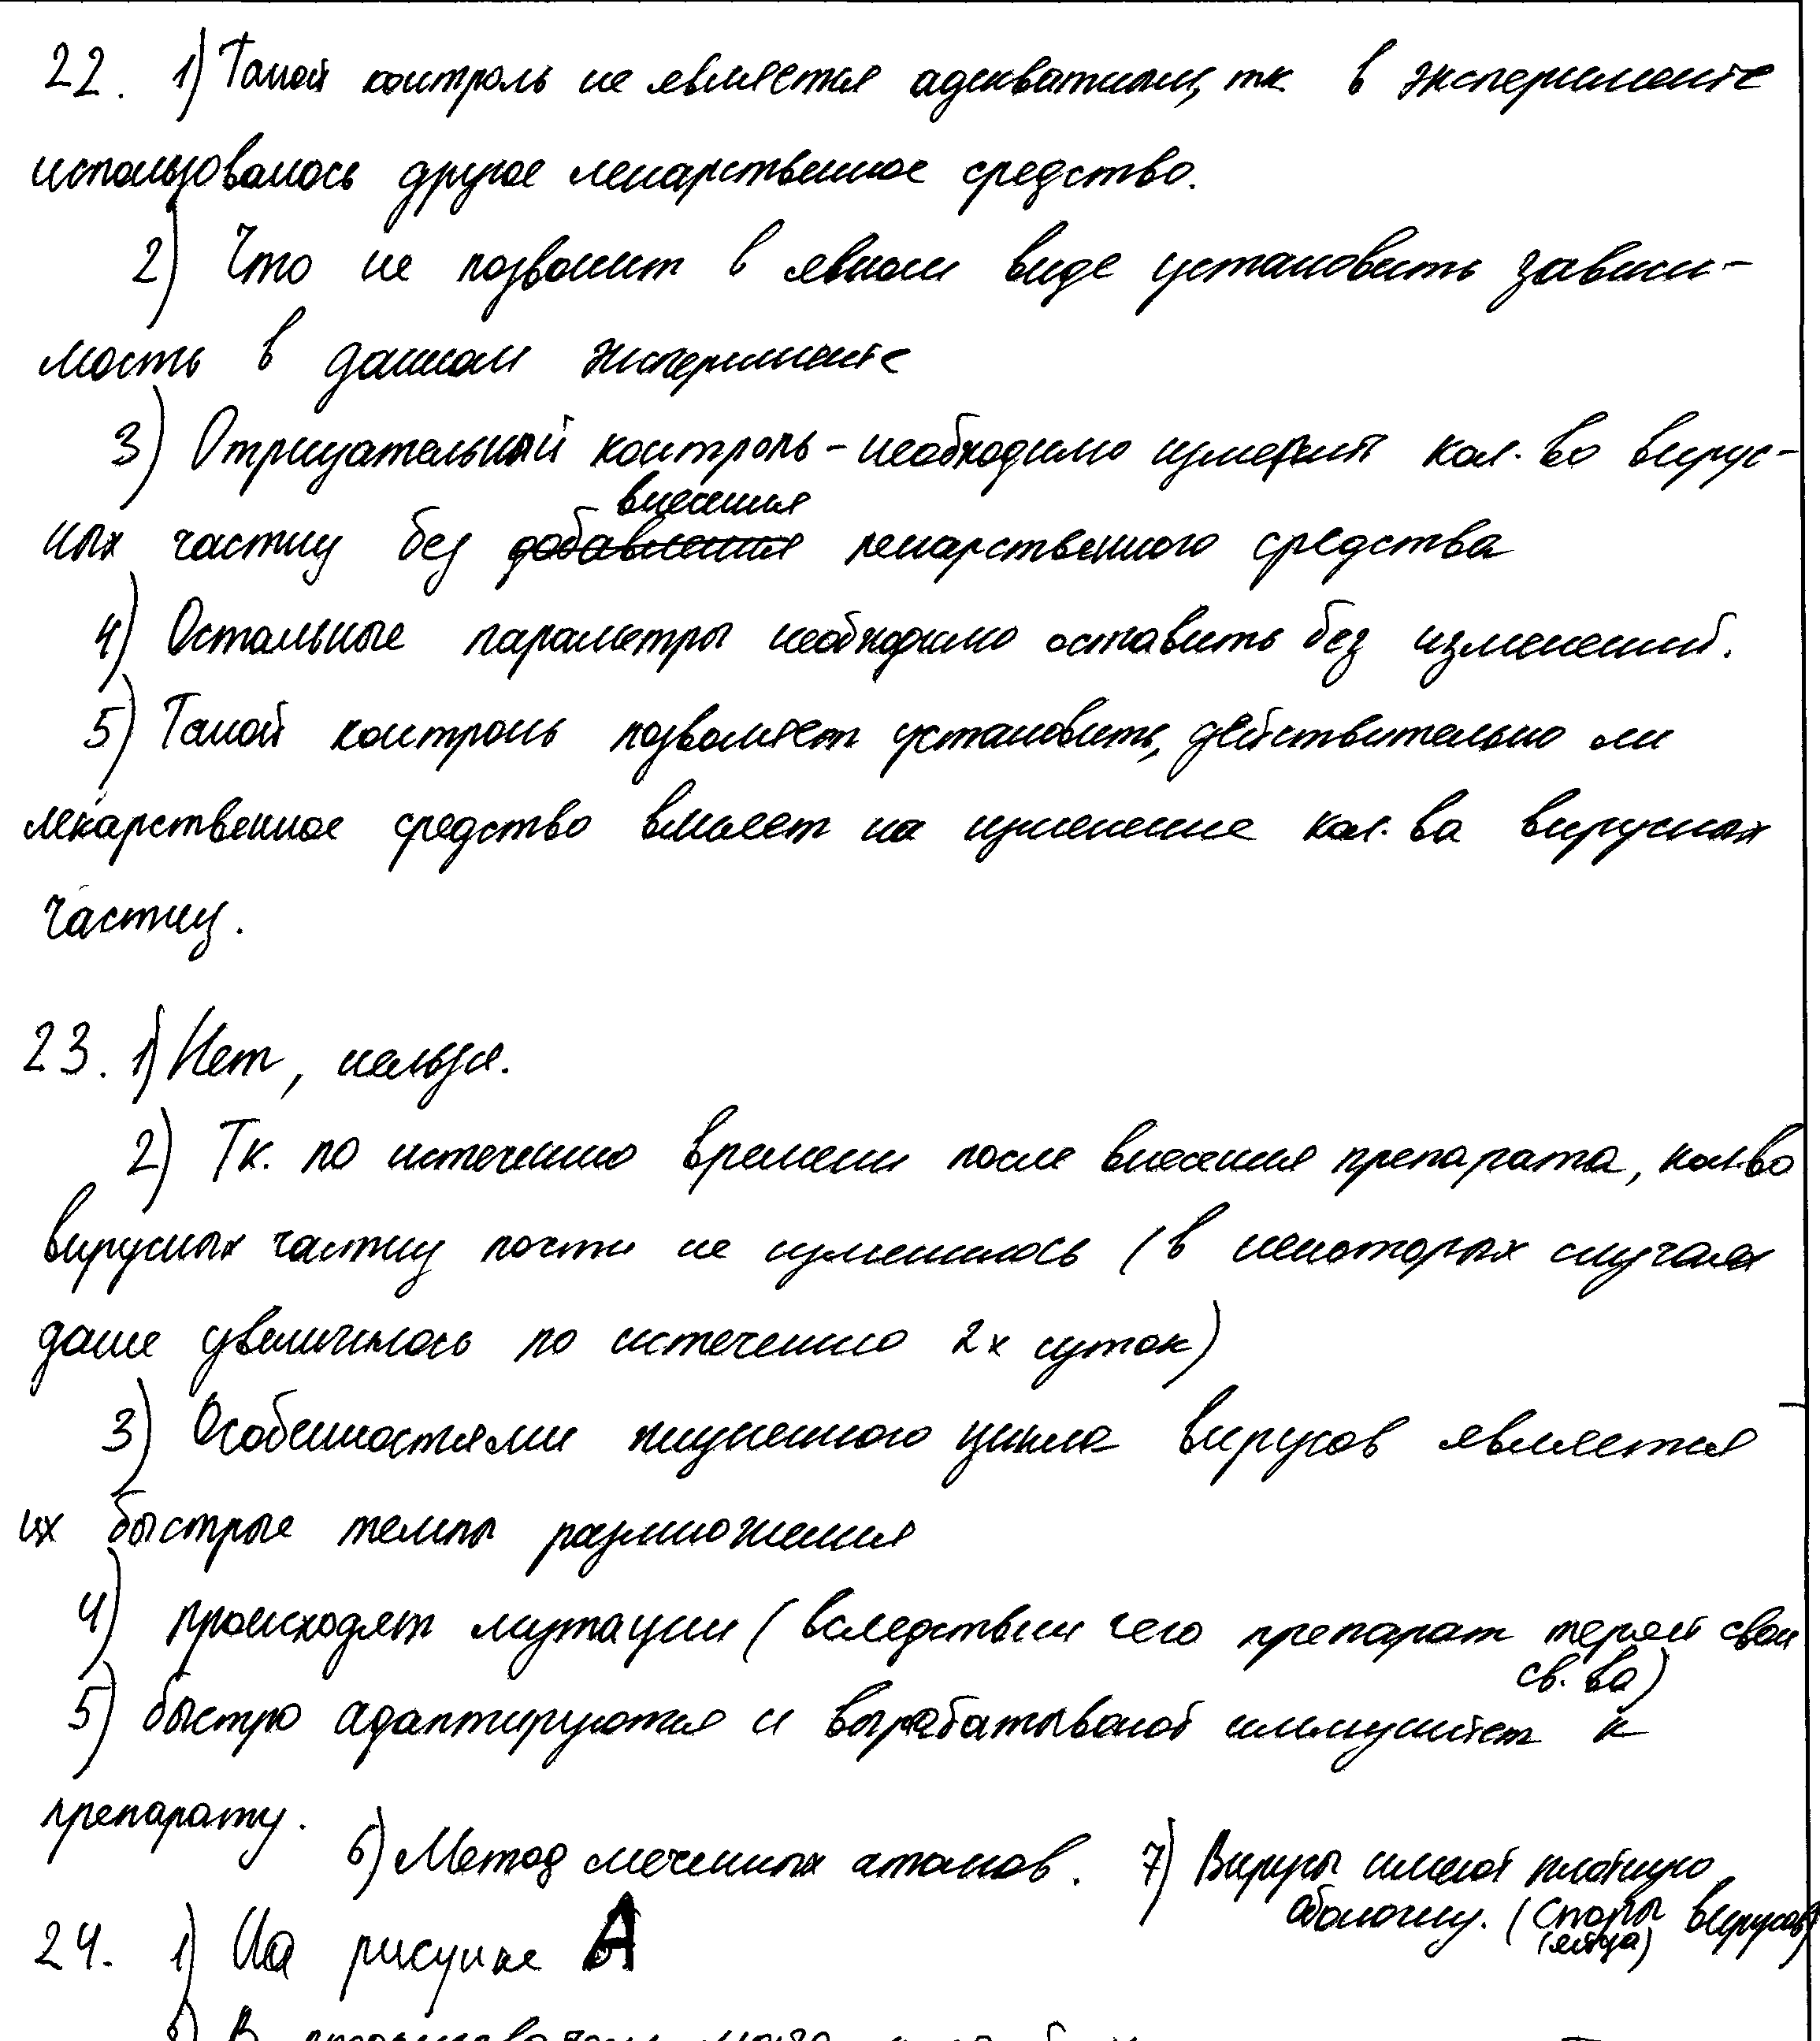 22. 1) Такой контроль не является адекватным, тк в эксперименте
использовалось другое лекарственное средство.
2) Что не позволит в явном виде установить зависи-
мость в данном эксперименте
3) Отрицательный контроль - необходимо измерить кол-во вирус-
ных частиц без внесения лекарственного средства
4) Остальные параметры необходимо оставить без изменений.
5) Такой контроль позволяет установить, действительно ли
лекарственное средство влияет на изменение кол-ва вирусных
частиц.
23. 1) Нет, нельзя.
2) Тк. по истечению времени после внесения препарата, кол-во
вирусных частиц почти не изменилось (в некоторых случаях
даже увеличилось по истечению 2х суток)
3) Особенностями жизненного цикла вирусов является
их быстрые темпы размножения
4) происходят мутации (вследствии чего препарат теряет свои
св-ва)
5) быстро адаптируются и вырабатывают иммунитет к
препарату.
6) Метод меченных атомов. 7) Вирусы имеют плотную
оболочку. (споры вирусов)
24. 1) На рисунке А